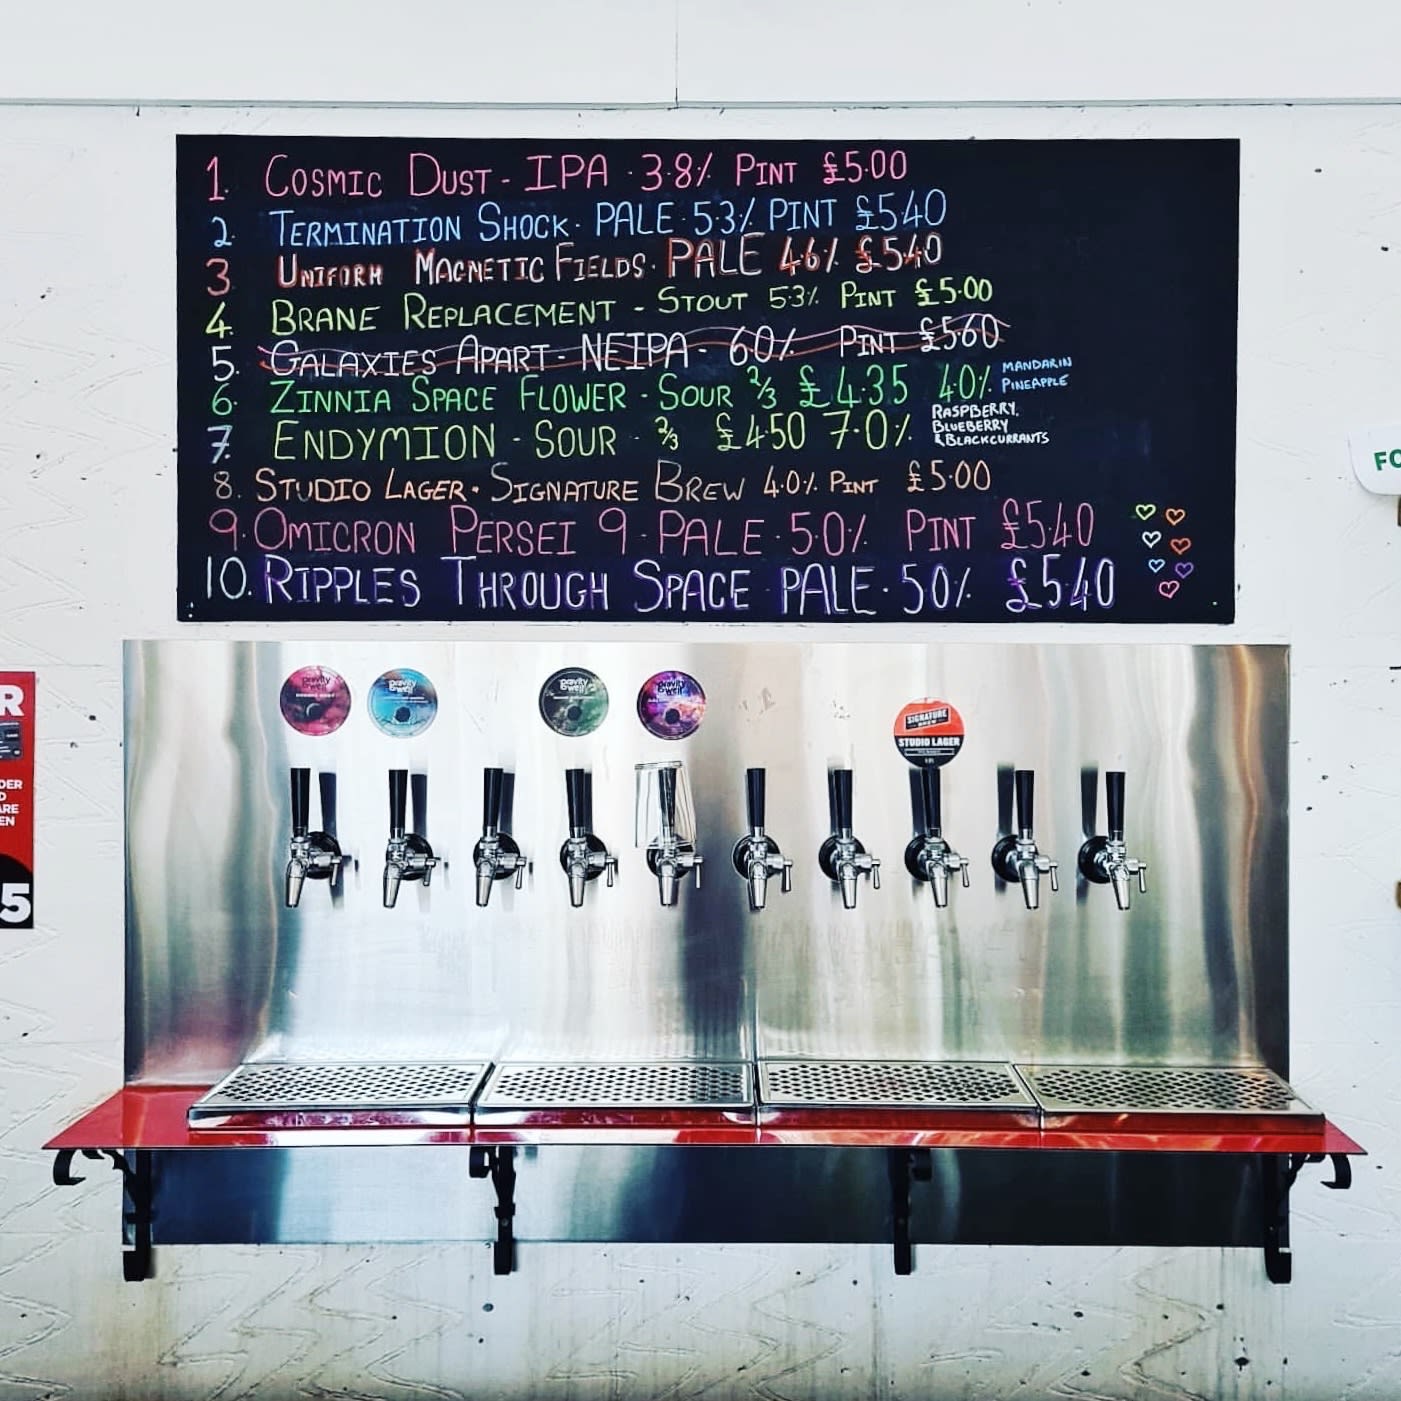 1. COSMIC DUST - IPA · 3.8% PINT £5.00
2. TERMINATION SHOCK · PALE · 5.3% PINT £5.40
3 UNIFORM MAGNETIC FIELDS · PALE 4.6% £5.40
4. BRANE REPLACEMENT - STOUT 5.3% PINT £5.00
5. GALAXIES APART - NEIPA - 6.0% PINT £5.60
6. ZINNIA SPACE FLOWER - SOUR 2/3 £4.35 4.0% MANDARIN
PINEAPPLE
7. ENDYMION - SOUR - 2/3 £4.50 7.0% RASPBERRY,
BLUEBERRY
& BLACKCURRANTS
8. STUDIO LAGER · SIGNATURE BREW 4.0% PINT £5.00
9. OMICRON PERSEI 9 · PALE · 5.0% PINT £5.40
10. RIPPLES THROUGH SPACE · PALE · 5.0% £5.40
gravity
well
gravity
well
gravity
well
gravity
well
SIGNATURE
BREW
STUDIO LAGER
R
DER
D
ARE
EN
5
FO